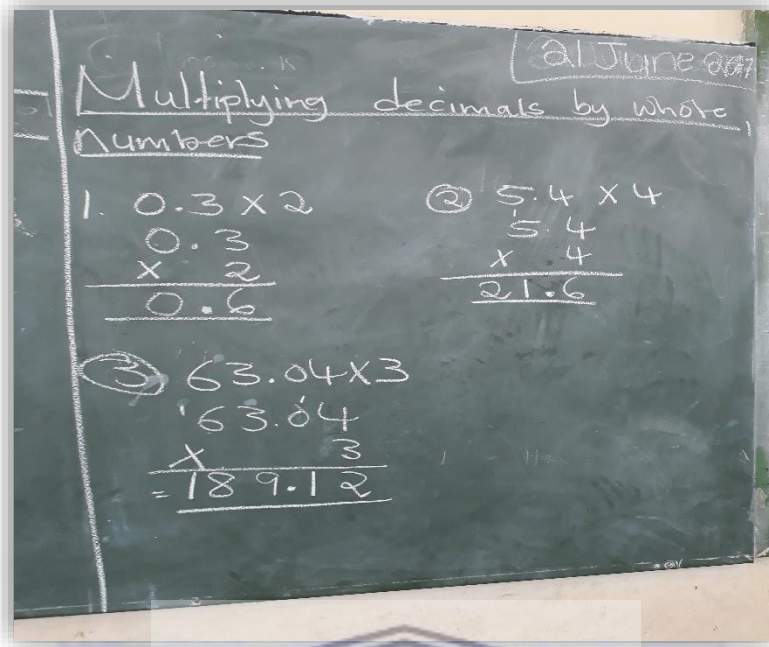 21 June
Multiplying decimals by whole
numbers
1. 0.3 x 2
0.3
x 2
0.6
② 5.4 x 4
5.4
x 4
21.6
③ 63.04 x 3
63.04
x 3
= 189.12